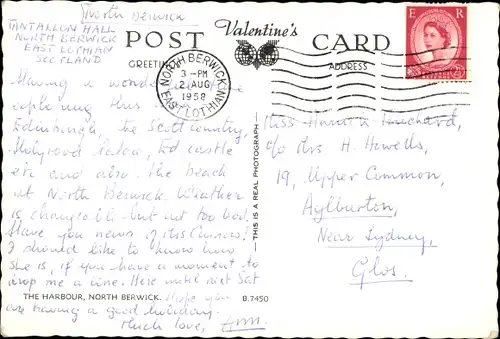 North Berwick
TANTALLON HALL
NORTH BERWICK
EAST LOTHIAN
SCOTLAND
Valentine's
POST CARD
GREETING
ADDRESS
NORTH BERWICK
3 - PM
2 AUG
1958
EAST LOTHIAN
E R
Having a wonderful time
exploring this
Edinburgh, the Scott country,
Holyrood Palace, Ed castle
etc and also the beach
at North Berwick. Weather
is changeable but not too bad.
Have you news of Miss
I should like to know how
she is, if you have a moment to
drop me a line. Here until next Sat
THE HARBOUR, NORTH BERWICK.
B.7450
Hope you
are having a good holiday.
Much love,
THIS IS A REAL PHOTOGRAPH
Miss
c/o Mrs H. Howells,
19, Upper Common,
Aylburton,
Near Lydney,
Glos.